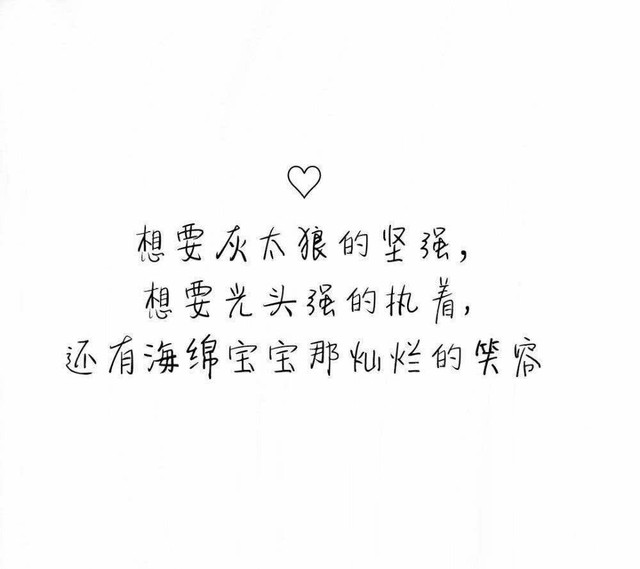 想要灰太狼的坚强,
想要光头强的执着,
还有海绵宝宝那灿烂的笑容